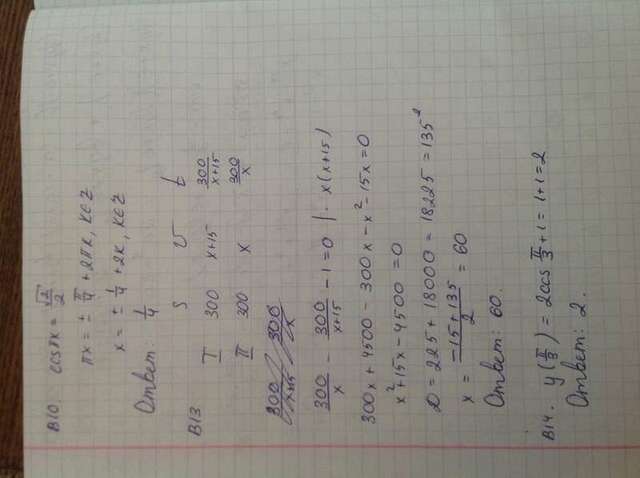 В10. cosπx = √2/2
πx = ± π/4 + 2πk, k∈Z
x = ± 1/4 + 2k, k∈Z
Ответ: 1/4
В13 S V t
I 300 x+15 300/x+15
II 300 x 300/x
300/x - 300/x+15 - 1 = 0 | · x(x+15)
300x + 4500 - 300x - x² - 15x = 0
x² + 15x - 4500 = 0
D = 225 + 18000 = 18225 = 135²
x = -15 + 135/2 = 60
Ответ: 60.
В14. y(π/3) = 2cos π/3 + 1 = 1 + 1 = 2
Ответ: 2.